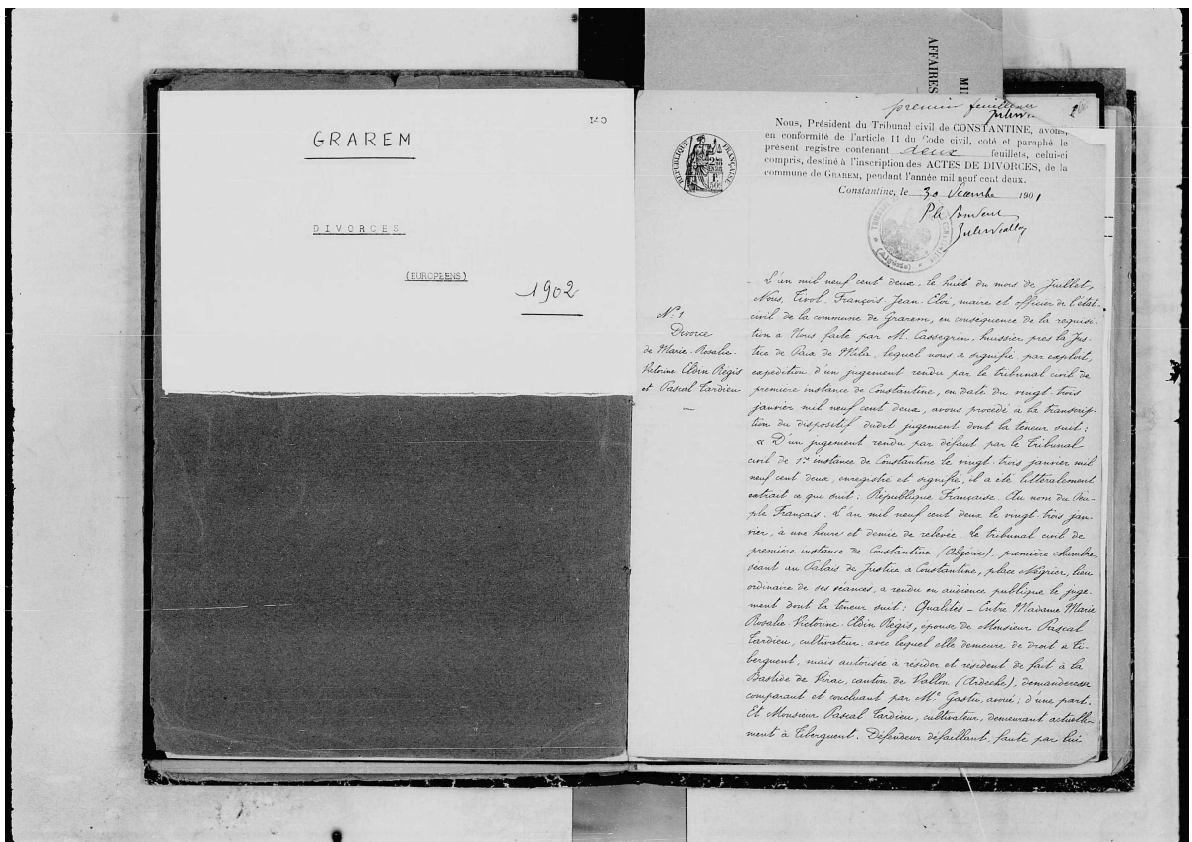 GRAREM
DIVORCES
(EUROPEENS)
1902
AFFAIRES
premier feuillet
Nous, Président du Tribunal civil de CONSTANTINE, avons,
en conformité de l'article 11 du Code civil, coté et paraphé le
présent registre contenant deux feuillets, celui-ci
compris, destiné à l'inscription des ACTES DE DIVORCES, de la
commune de GRAREM, pendant l'année mil neuf cent deux.
Constantine, le 30 Décembre 1901
RÉPUBLIQUE FRANÇAISE
(Algérie)
N° 1
Divorce
de Marie-Rosalie-
Victorine Eldin Régis
et Pascal Tardieu
L'an mil neuf cent deux, le huit du mois de Juillet,
Nous, Tivol François Jean Eloi, maire et officier de l'état-
civil de la commune de Grarem, en conséquence de la réquisi-
tion à Nous faite par M. Cassegrin, huissier près la Jus-
tice de Paix de Mila, lequel nous a signifié par exploit,
expédition d'un jugement rendu par le tribunal civil de
première instance de Constantine, en date du vingt-trois
janvier mil neuf cent deux, avons procédé à la transcrip-
tion du dispositif dudit jugement dont la teneur suit :
« D'un jugement rendu par défaut par le Tribunal
civil de 1re instance de Constantine le vingt-trois janvier mil
neuf cent deux, enregistré et signifié, il a été littéralement
extrait ce qui suit : République Française. Au nom du Peu-
ple Français. L'an mil neuf cent deux le vingt-trois jan-
vier, à une heure et demie de relevée. Le tribunal civil de
première instance de Constantine (Algérie), première chambre,
séant au Palais de Justice à Constantine, place Négrier, lieu
ordinaire de ses séances, a rendu en audience publique le juge-
ment dont la teneur suit : Qualités – Entre Madame Marie
Rosalie-Victorine-Eldin Régis, épouse de Monsieur Pascal
Tardieu, cultivateur, avec lequel elle demeure de droit à Ti-
berguent, mais autorisée à résider et résident de fait à la
Bastide de Virac, canton de Vallon (Ardèche), demanderesse
comparant et concluant par Me Gastu, avoué ; d'une part.
Et Monsieur Pascal Tardieu, cultivateur, demeurant actuelle-
ment à Tiberguent. Défendeur défaillant, faute par lui